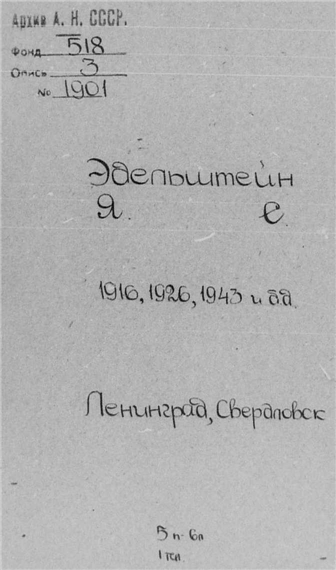 Архив А. Н. СССР.
Фонд 518
Опись 3
№ 1901
Эдельштейн
Я. Є.
1916, 1926, 1943 и бд.
Ленинград, Свердловск
5 п. 6л
1 тел